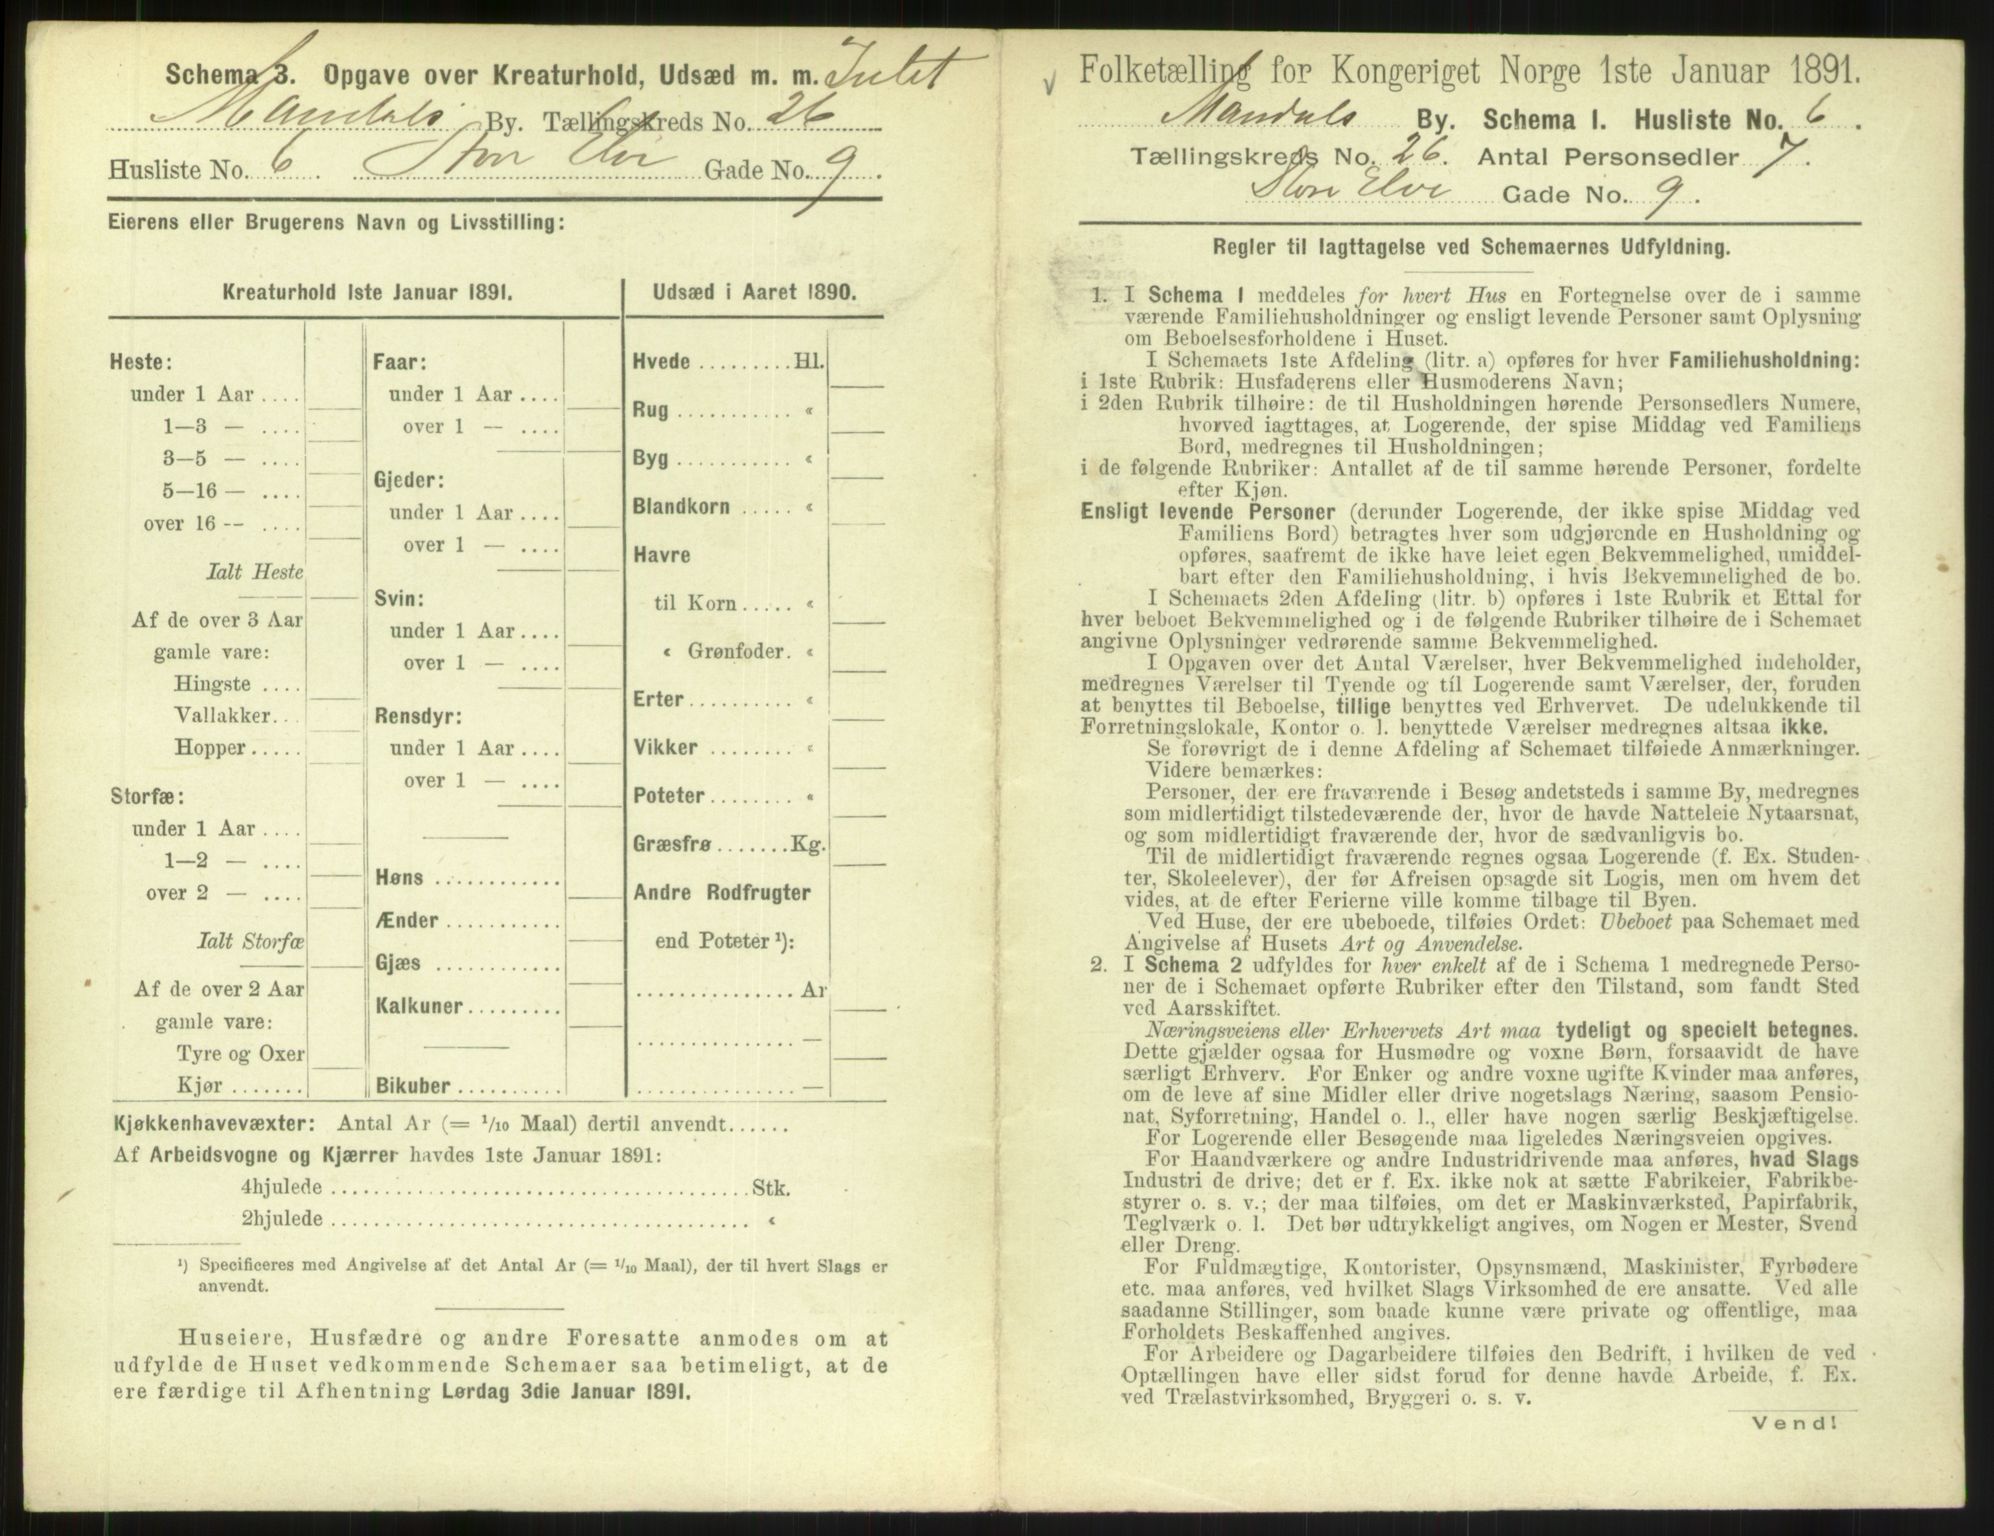 Schema 3. Opgave over Kreaturhold, Udsæd m. m. Intet
Mandals By. Tællingskreds No. 26
Husliste No. 6. Store Elve Gade No. 9.
Eierens eller Brugerens Navn og Livsstilling:
Kreaturhold 1ste Januar 1891.
Heste:
under 1 Aar ....
1—3 — ....
3—5 — ....
5—16 — ....
over 16 -- ....
Ialt Heste
Af de over 3 Aar
gamle vare:
Hingste ....
Vallakker...
Hopper.....
Storfæ:
under 1 Aar ....
1—2 — ....
over 2 — ....
Ialt Storfæ
Af de over 2 Aar
gamle vare:
Tyre og Oxer
Kjør.......
Faar:
under 1 Aar ....
over 1 — ....
Gjeder:
under 1 Aar ....
over 1 — ....
Svin:
under 1 Aar ....
over 1 — ....
Rensdyr:
under 1 Aar ....
over 1 — ....
Høns ............
Ænder ...........
Gjæs ............
Kalkuner.........
Bikuber ..........
Udsæd i Aaret 1890.
Hvede .........Hl.
Rug ........... «
Byg ........... «
Blandkorn ..... «
Havre
til Korn..... «
« Grønfoder. «
Erter.......... «
Vikker ........ «
Poteter........ «
Græsfrø.......Kg.
Andre Rodfrugter
end Poteter ¹):
...............Ar
............... —
............... —
Kjøkkenhavevæxter: Antal Ar (= 1/10 Maal) dertil anvendt......
Af Arbeidsvogne og Kjærrer havdes 1ste Januar 1891:
4hjulede ........................................Stk.
2hjulede ........................................ «
¹) Specificeres med Angivelse af det Antal Ar (= 1/10 Maal), der til hvert Slags er
anvendt.
Huseiere, Husfædre og andre Foresatte anmodes om at
udfylde de Huset vedkommende Schemaer saa betimeligt, at de
ere færdige til Afhentning Lørdag 3die Januar 1891.
Folketælling for Kongeriget Norge 1ste Januar 1891.
Mandals By. Schema I. Husliste No. 6.
Tællingskreds No. 26. Antal Personsedler 7.
Store Elve Gade No. 9.
Regler til Iagttagelse ved Schemaernes Udfyldning.
1. I Schema 1 meddeles for hvert Hus en Fortegnelse over de i samme
værende Familiehusholdninger og ensligt levende Personer samt Oplysning
om Beboelsesforholdene i Huset.
I Schemaets 1ste Afdeling (litr. a) opføres for hver Familiehusholdning:
i 1ste Rubrik: Husfaderens eller Husmoderens Navn;
i 2den Rubrik tilhøire: de til Husholdningen hørende Personsedlers Numere,
hvorved iagttages, at Logerende, der spise Middag ved Familiens
Bord, medregnes til Husholdningen;
i de følgende Rubriker: Antallet af de til samme hørende Personer, fordelte
efter Kjøn.
Ensligt levende Personer (derunder Logerende, der ikke spise Middag ved
Familiens Bord) betragtes hver som udgjørende en Husholdning og
opføres, saafremt de ikke have leiet egen Bekvemmelighed, umiddel-
bart efter den Familiehusholdning, i hvis Bekvemmelighed de bo.
I Schemaets 2den Afdeling (litr. b) opføres i 1ste Rubrik et Ettal for
hver beboet Bekvemmelighed og i de følgende Rubriker tilhøire de i Schemaet
angivne Oplysninger vedrørende samme Bekvemmelighed.
I Opgaven over det Antal Værelser, hver Bekvemmelighed indeholder,
medregnes Værelser til Tyende og til Logerende samt Værelser, der, foruden
at benyttes til Beboelse, tillige benyttes ved Erhvervet. De udelukkende til
Forretningslokale, Kontor o. l. benyttede Værelser medregnes altsaa ikke.
Se forøvrigt de i denne Afdeling af Schemaet tilføiede Anmærkninger.
Videre bemærkes:
Personer, der ere fraværende i Besøg andetsteds i samme By, medregnes
som midlertidigt tilstedeværende der, hvor de havde Natteleie Nytaarsnat,
og som midlertidigt fraværende der, hvor de sædvanligvis bo.
Til de midlertidigt fraværende regnes ogsaa Logerende (f. Ex. Studen-
ter, Skoleelever), der før Afreisen opsagde sit Logis, men om hvem det
vides, at de efter Ferierne ville komme tilbage til Byen.
Ved Huse, der ere ubeboede, tilføies Ordet: Ubeboet paa Schemaet med
Angivelse af Husets Art og Anvendelse.
2. I Schema 2 udfyldes for hver enkelt af de i Schema 1 medregnede Perso-
ner de i Schemaet opførte Rubriker efter den Tilstand, som fandt Sted
ved Aarsskiftet.
Næringsveiens eller Erhvervets Art maa tydeligt og specielt betegnes.
Dette gjælder ogsaa for Husmødre og voxne Børn, forsaavidt de have
særligt Erhverv. For Enker og andre voxne ugifte Kvinder maa anføres,
om de leve af sine Midler eller drive nogetslags Næring, saasom Pensio-
nat, Syforretning, Handel o. l., eller have nogen særlig Beskjæftigelse.
For Logerende eller Besøgende maa ligeledes Næringsveien opgives.
For Haandværkere og andre Industridrivende maa anføres, hvad Slags
Industri de drive; det er f. Ex. ikke nok at sætte Fabrikeier, Fabrikbe-
styrer o. s. v.; der maa tilføies, om det er Maskinværksted, Papirfabrik,
Teglværk o. l. Det bør udtrykkeligt angives, om Nogen er Mester, Svend
eller Dreng.
For Fuldmægtige, Kontorister, Opsynsmænd, Maskinister, Fyrbødere
etc. maa anføres, ved hvilket Slags Virksomhed de ere ansatte. Ved alle
saadanne Stillinger, som baade kunne være private og offentlige, maa
Forholdets Beskaffenhed angives.
For Arbeidere og Dagarbeidere tilføies den Bedrift, i hvilken de ved
Optællingen have eller sidst forud for denne havde Arbeide, f. Ex.
ved Trælastvirksomhed, Bryggeri o. s. v.
Vend!